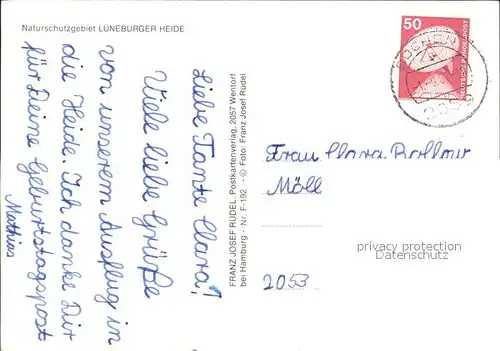 Naturschutzgebiet LÜNEBURGER HEIDE
Liebe Tante Clara!
Viele liebe Grüße
von unserem Ausflug in
die Heide. Ich danke Dir
für Deine Geburtstagspost
Mathias
FRANZ JOSEF RÜDEL, Postkartenverlag, 2057 Wentorf
bei Hamburg - Nr. F-192 - © Foto: Franz Josef Rüdel
50
DEUTSCHE BUNDESPOST
Frau Clara
Mölln
2053
privacy protection
Datenschutz